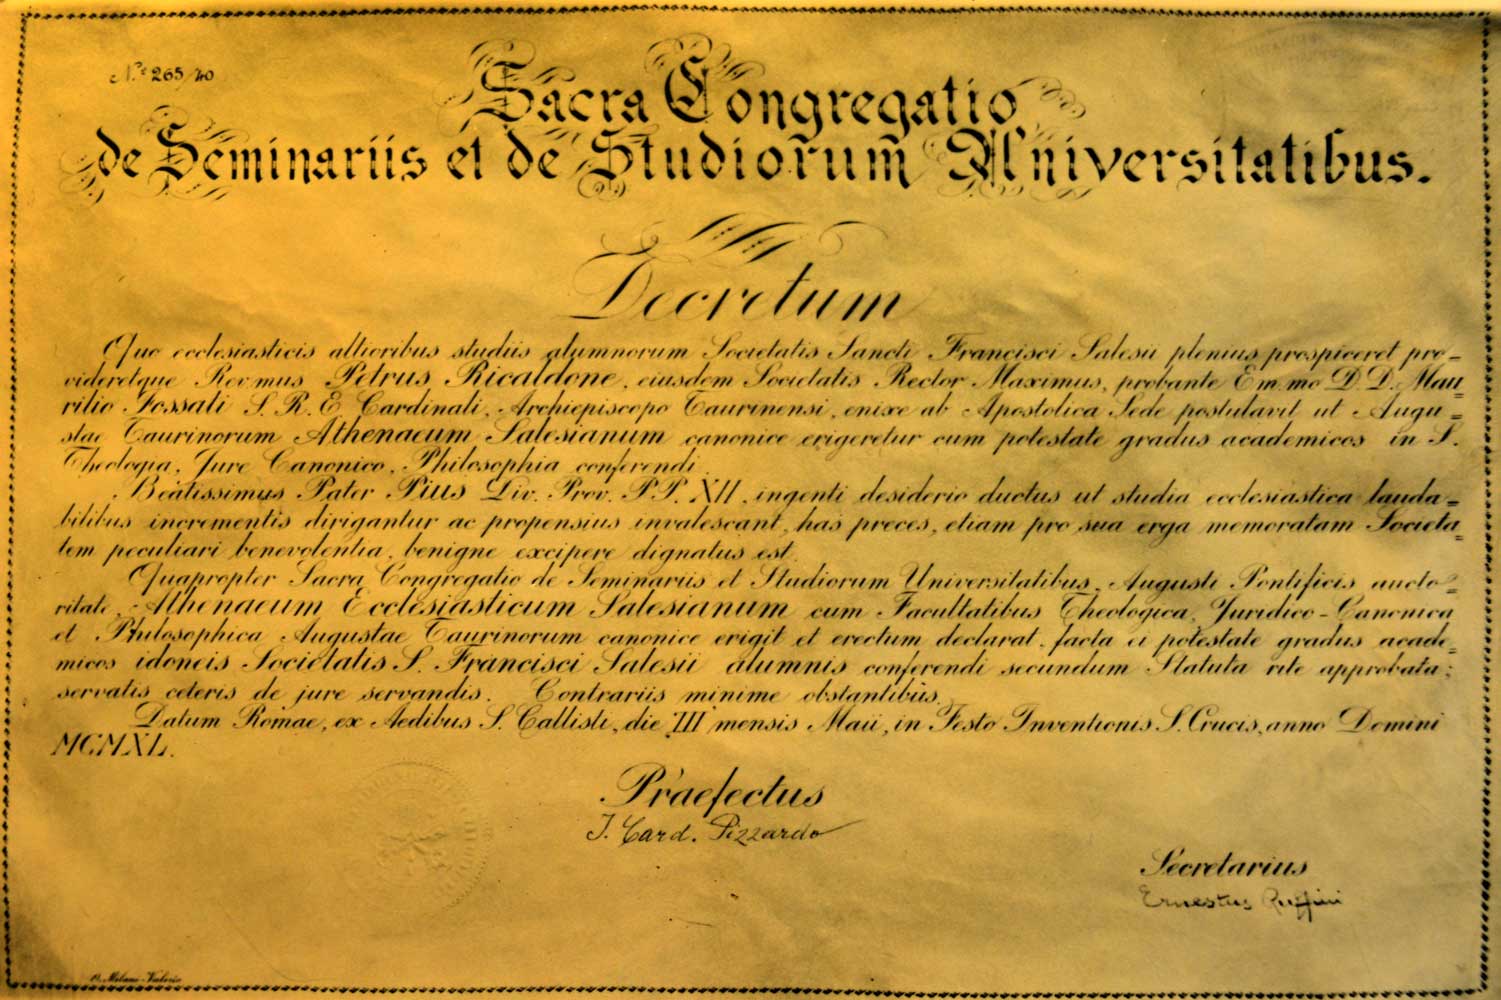 N.º 265/40
Sacra Congregatio
de Seminariis et de Studiorum Universitatibus.
Decretum
Quo ecclesiasticis altioribus studiis alumnorum Societatis Sancti Francisci Salesii plenius prospiceret pro=
videretque Rev.mus Petrus Ricaldone, eiusdem Societatis Rector Maximus, probante Em.mo D. D. Mau=
rilio Fossati S. R. E. Cardinali, Archiepiscopo Taurinensi, enixe ab Apostolica Sede postulavit ut Augu=
stae Taurinorum Athenaeum Salesianum canonice erigeretur cum potestate gradus academicos in S.
Theologia, Jure Canonico, Philosophia conferendi.
Beatissimus Pater Pius Div. Prov. PP. XII, ingenti desiderio ductus ut studia ecclesiastica lauda=
bilibus incrementis dirigantur ac propensius invalescant, has preces, etiam pro sua erga memoratam Societa=
tem peculiari benevolentia, benigne excipere dignatus est.
Quapropter Sacra Congregatio de Seminariis et Studiorum Universitatibus, Augusti Pontificis aucto=
ritate, Athenaeum Ecclesiasticum Salesianum cum Facultatibus Theologica, Juridico-Canonica
et Philosophica Augustae Taurinorum canonice erigit et erectum declarat, facta ei potestate gradus acade=
micos idoneis Societatis S. Francisci Salesii alumnis conferendi secundum Statuta rite approbata;
servatis ceteris de jure servandis. Contrariis minime obstantibus.
Datum Romae, ex Aedibus S. Callisti, die III mensis Maii, in Festo Inventionis S. Crucis, anno Domini
MCMXL.
Praefectus
J. Card. Pizzardo
Secretarius
Ernestus Ruffini